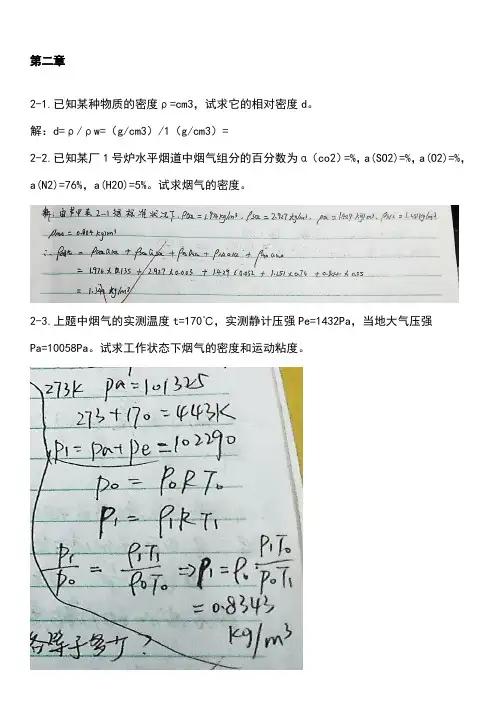 第二章
2-1.已知某种物质的密度ρ=cm3，试求它的相对密度d。
解：d=ρ/ρw=（g/cm3）/1（g/cm3）=
2-2.已知某厂1号炉水平烟道中烟气组分的百分数为α（co2）=%，a(SO2)=%，a(O2)=%，
a(N2)=76%，a(H2O)=5%。试求烟气的密度。
解：由 表2-1 标准状况下，ρco2=1.976kg/m³，ρso2=2.927kg/m³，ρo2=1.429kg/m³，ρN2=1.251kg/m³
ρH2O=0.804kg/m³
= 1.976×0.135 + 2.927×0.003 + 1.429×0.052 + 1.251×0.76 + 0.804×0.05
kg/m³
2-3.上题中烟气的实测温度t=170℃，实测静计压强Pe=1432Pa，当地大气压强
Pa=10058Pa。试求工作状态下烟气的密度和运动粘度。
273K pa=101325
273+170=443K
P1=Pa+Pe=102290
P0=ρ0RT0
P1=ρ1RT1
P1/P0=ρ1T1/ρ0T0 ⇒ρ1=ρ0·P1T0/P0T1
=0.8343
kg/m³
各等子多少？